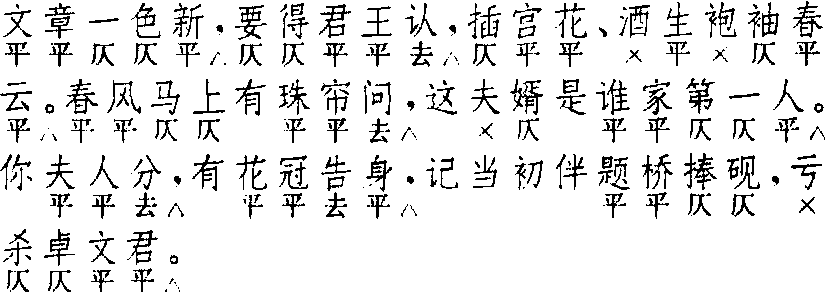 文章一色新，要得君王认，插宫花、酒生袍袖春
平平仄仄平△仄仄平平去△仄平平×平×仄平
云。春风马上有珠帘问，这夫婿是谁家第一人。
平△平平仄仄平平去△×仄平平仄仄平△
你夫人分，有花冠告身，记当初伴题桥捧砚，亏
平平去△平平去平△平平仄仄×
杀卓文君。
仄仄平平△